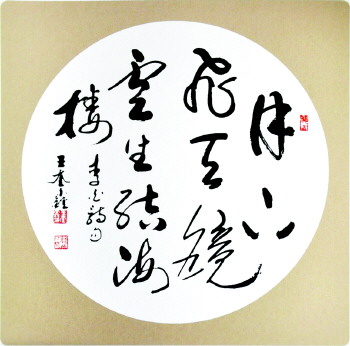 月下
飛天鏡
雲生結海
樓
李白詩句
王